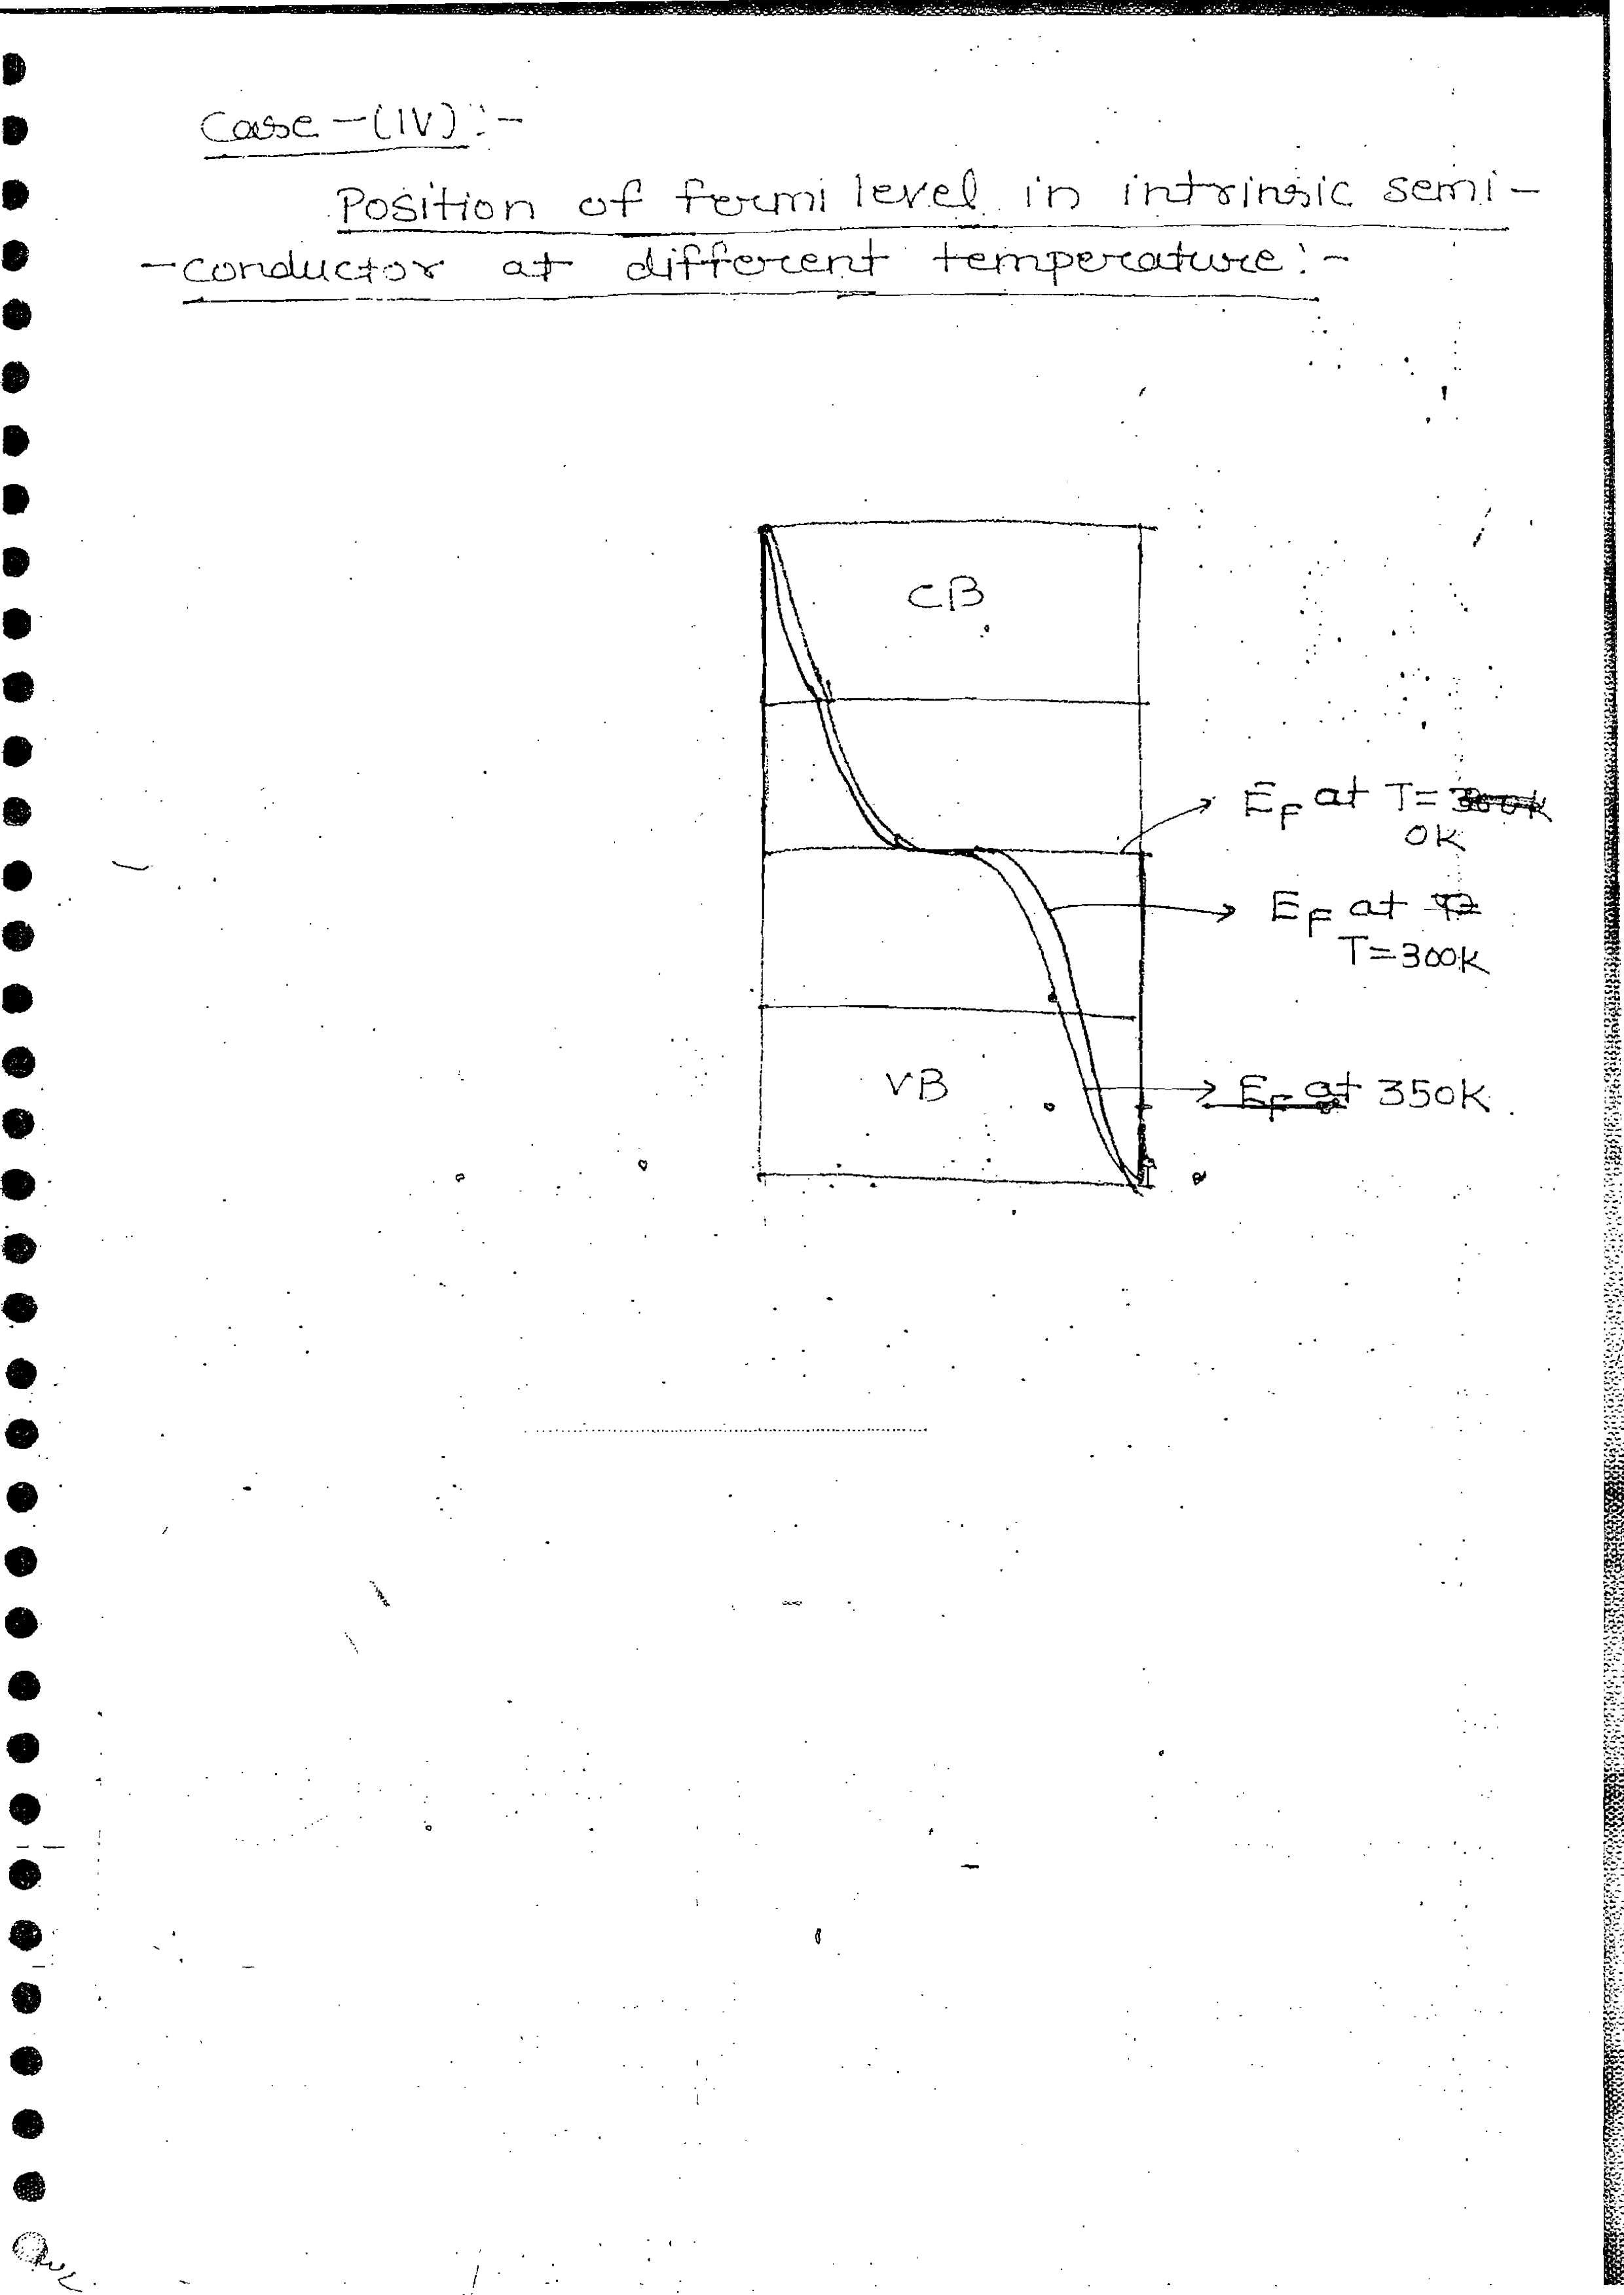 Case-(IV):-
Position of fermi level in intrinsic semi-
-conductor at different temperature:-
CB
EF at T=300K
0K
EF at T=
T=300K
VB
EF at 350K